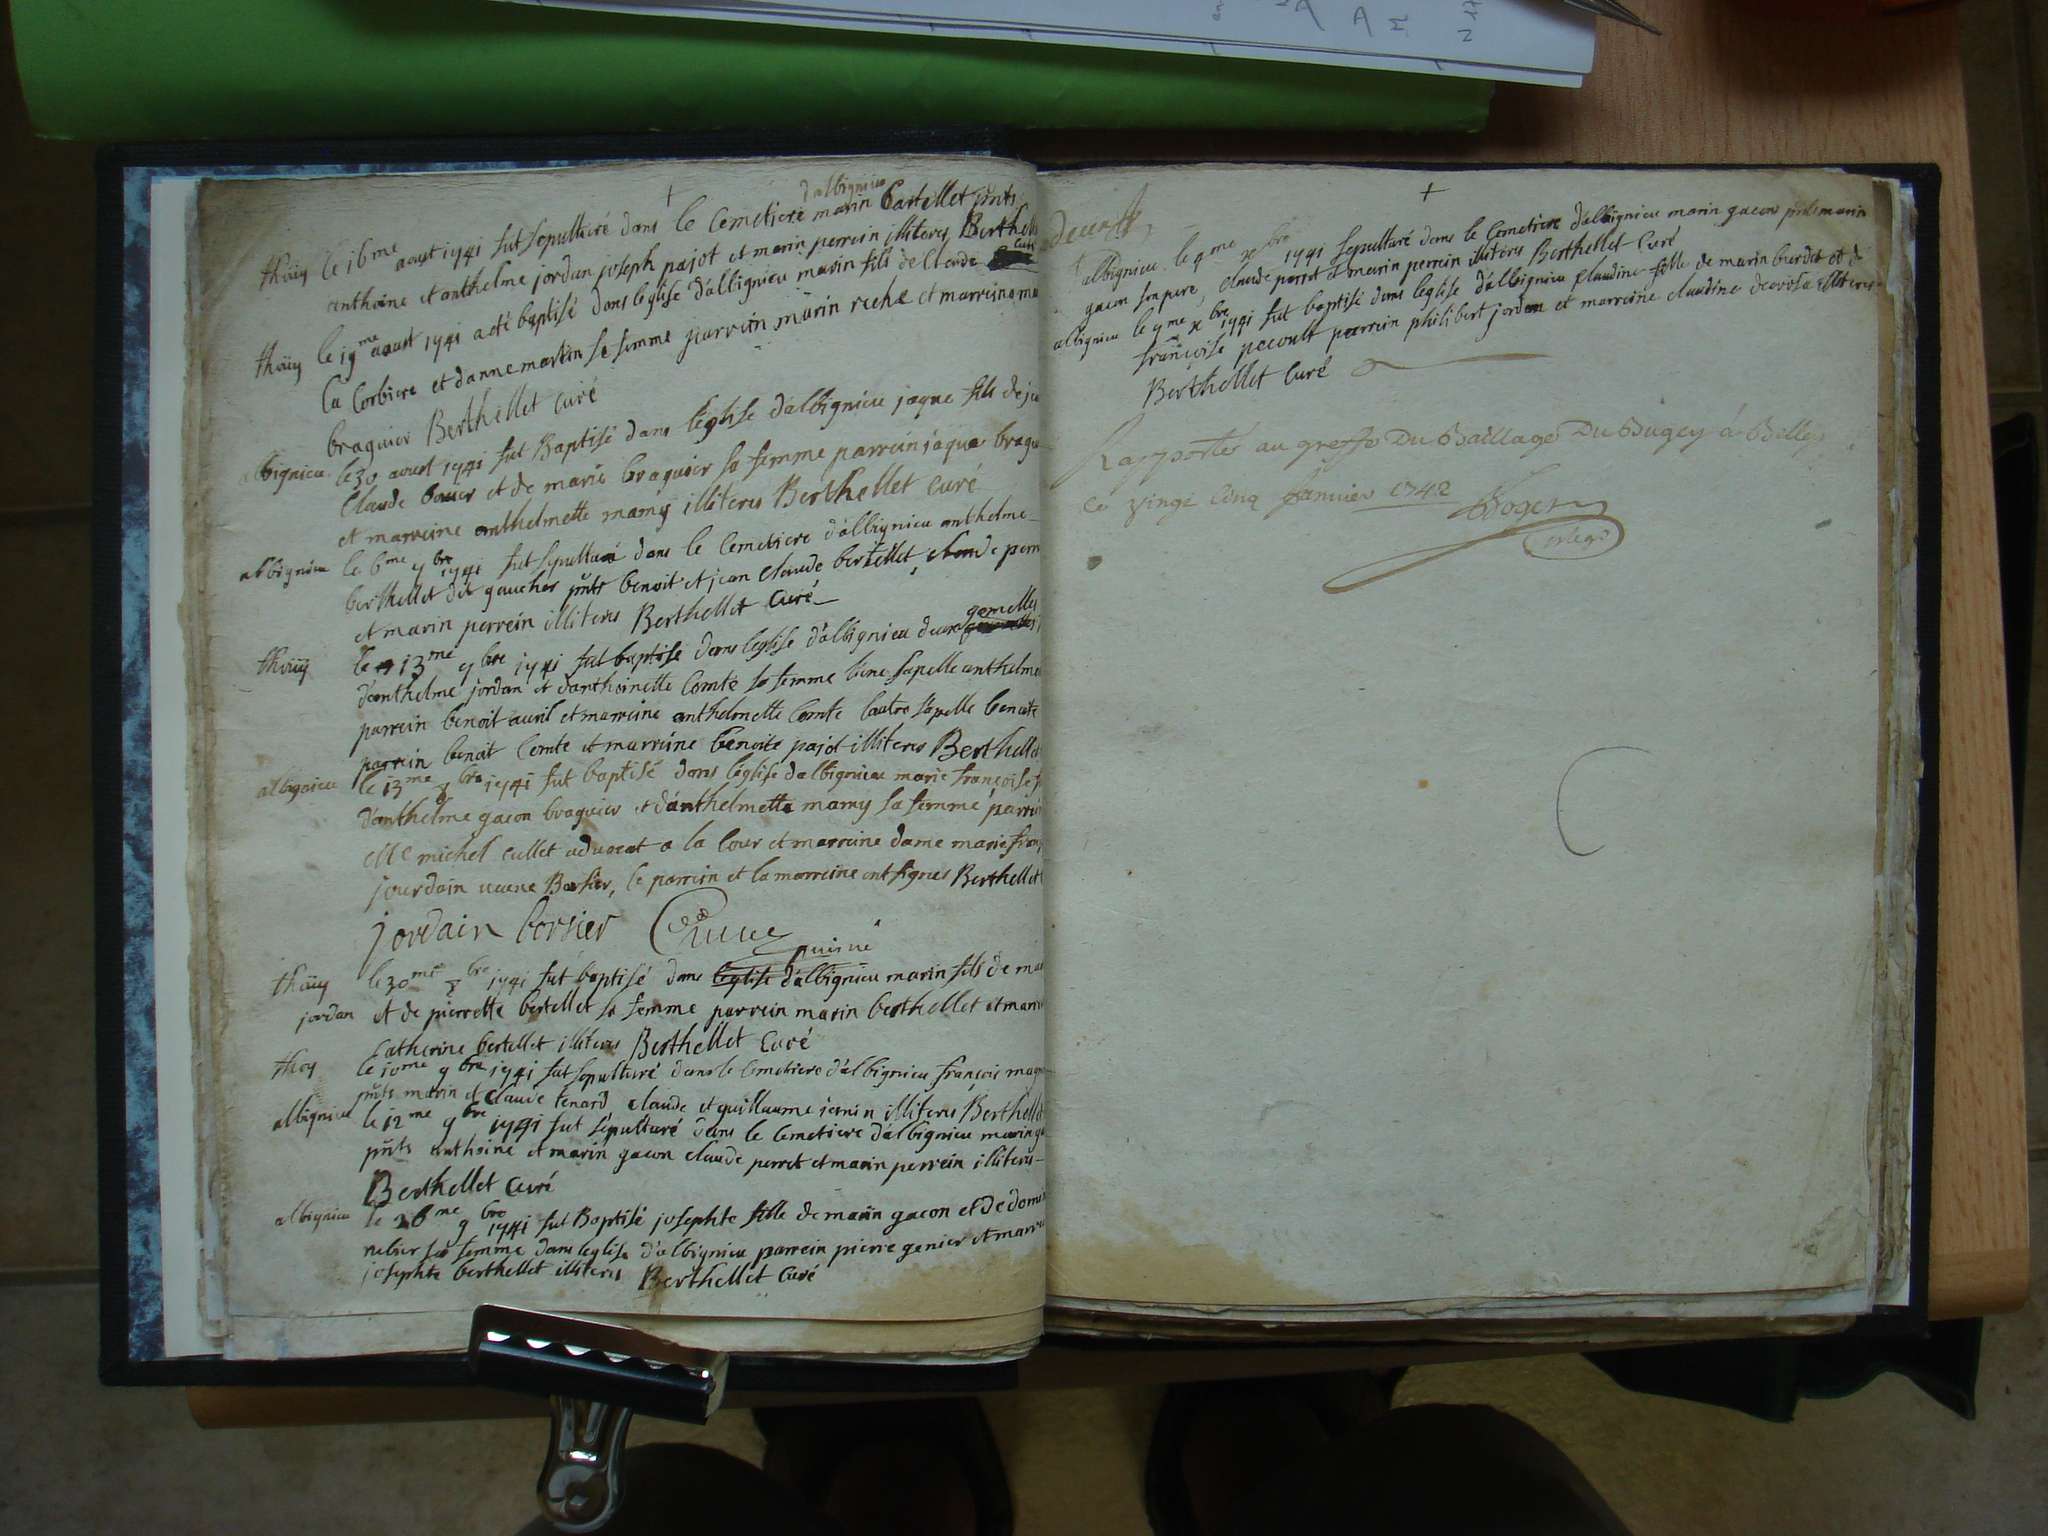 +
d'albignieu
thöuy le 16me aoust 1741 fut sepulturé dans le Cemetiere marin bartellet pnts
anthoine et anthelme jordan joseph pajot et marin perrein illiteres Berthellet
curé
thöuy le 19me aoust 1741 a eté baptisé dans leglise d'albignieu marin fils de Claude
la Corbiere et danne martin sa femme parrein marin et marreine
braguier Berthellet Curé
albignieu le 30 aoust 1741 fut Baptisé dans leglise d'albignieu jaque fils de
Claude et de marie braguier sa femme parrein jaque
et marreine anthelmette mamy illiteres Berthellet Curé
albignieu le 6me 9bre 1741 fut sepulturé dans le Cemetiere d'albignieu anthelme
berthellet dit gaucher pnts benoit et jean Claude bertellet, claude
et marin perrein illiteres Berthellet Curé
gemelles
thöuy le 13me 9bre 1741 fut baptisé dans leglise d'albignieu deux
d'anthelme jordan et danthoinette Comte sa femme lune sapelle anthelme
parrein benoit auril et marreine anthelmette Comte lautre sapelle benoite
parrein benoit Comte et marreine benoite pajot illiteres Berthellet
albignieu le 13me 8bre 1741 fut baptisé dans leglise d'albignieu marie françoise
d'anthelme gacon braguier et d'anthelmette mamy sa femme parrein
michel cullet aduocat a la Cour et marreine dame marie
jourdain ueuue Borsier, le parrein et la marreine ont signes Berthellet
jordain borsier
thöuy le 30me 1741 fut baptisé dans leglise d'albignieu marin fils de
jordan et de pierrette bertellet sa femme parrein marin berthellet et
Catherine bertellet illiteres Berthellet Curé
thoy le 10me 9bre 1741 fut sepulturé dans le Cemetiere d'albignieu françois
pnts marin et Claude tenard Claude et guillaume illiteres Berthellet
albignieu le 12me 9bre 1741 fut sepulturé dans le Cemetiere d'albignieu marin
pnts anthoine et marin gacon Claude perret et marin perrein illiteres
Berthellet Curé
albignieu le 26me 9bre 1741 fut Baptisé josephte fille de marin gacon et de
sa femme dans leglise d'albignieu parrein pierre genier et
josephte berthellet illiteres Berthellet Curé
+
albignieu le 9me xbre 1741 sepulturé dans le Cemetiere d'albignieu marin gacon pnts marin
gacon son pere, claude perret et marin perrein illiteres Berthellet Curé
albignieu le 9me xbre 1741 fut baptisé dans leglise d'albignieu Claudine fille de marin burdet et de
françoise pecoult parrein philibert jordan et marreine claudine illiteres
Berthellet Curé
Rapporté au greffe Du Bailliage Du Bugey à Belley
ce vingt cinq Janvier 1742